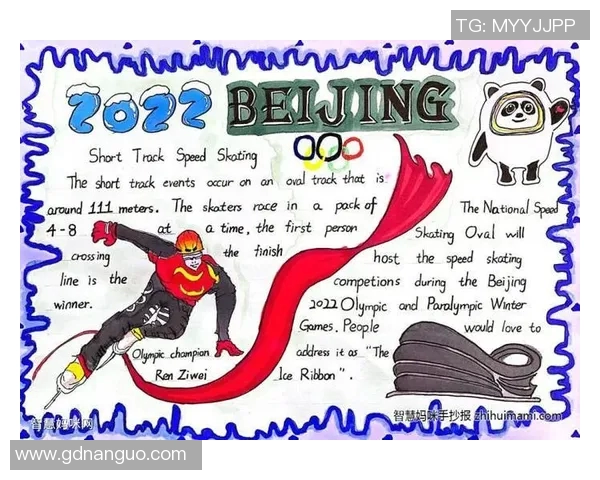 TG: MYYJJPP
2022 BEIJING
Short Track Speed Skating
The short track events occur on an oval track that is
around 111 meters. The skaters race in a pack of
4-8 at a time, the first person
crossing the finish
line is the
winner.
Olympic champion
Ren Ziwei
The National Speed
Skating Oval will
host the speed skating
competions during the Beijing
2022 Olympic and Paralympic Winter
Games. People would love to
address it as "The
Ice Ribbon".
智慧妈咪网
智慧妈咪手抄报 zhihuimami.com
www.gdnanguo.com